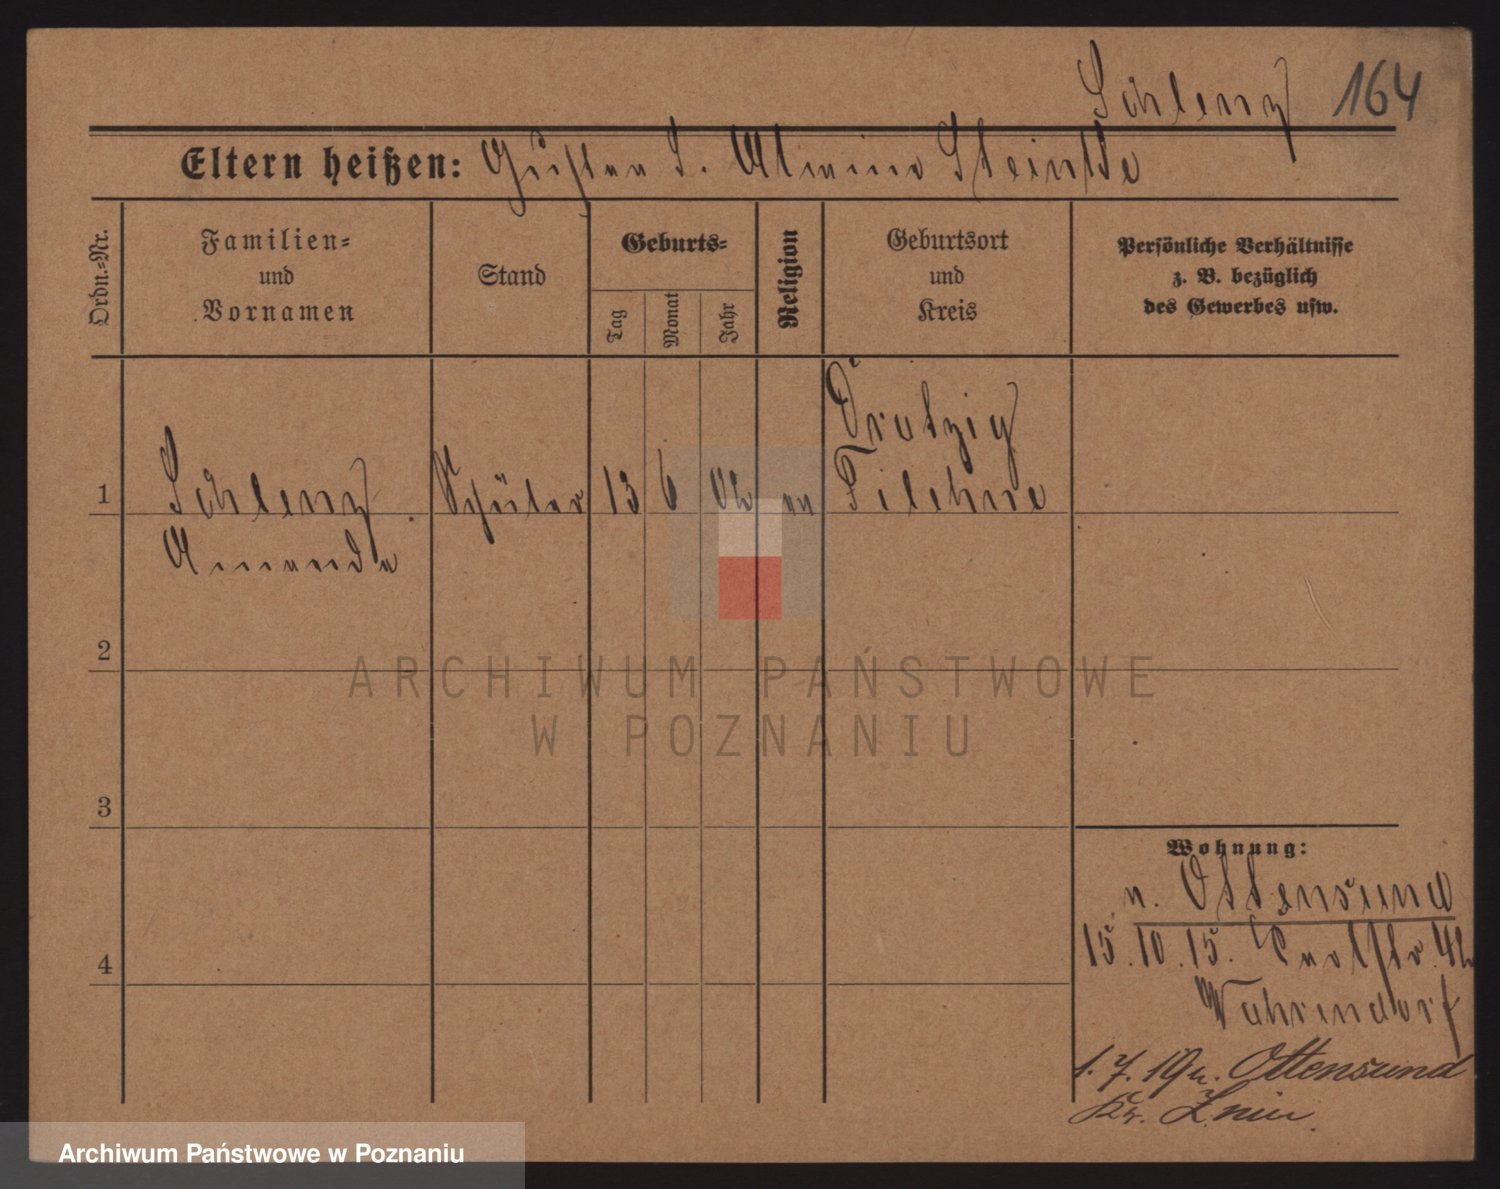 Schlenz 164
Eltern heißen: Gustav S. Almine Steinke
Ordn.=Nr.
Familien=
und
Vornamen
Stand
Geburts=
Tag
Monat
Jahr
Religion
Geburtsort
und
Kreis
Persönliche Verhältnisse
z. B. bezüglich
des Gewerbes usw.
1
Schlenz
Amanda
Schüler
13
6
02
ev
Dratzig
Filehne
2
3
4
Wohnung:
n. Ottensund
15.10.15. Carlstr. 42
Wahrendorf
1.7.19 n. Ottensund
Kr. Znin.
ARCHIWUM PAŃSTWOWE
W POZNANIU
Archiwum Państwowe w Poznaniu